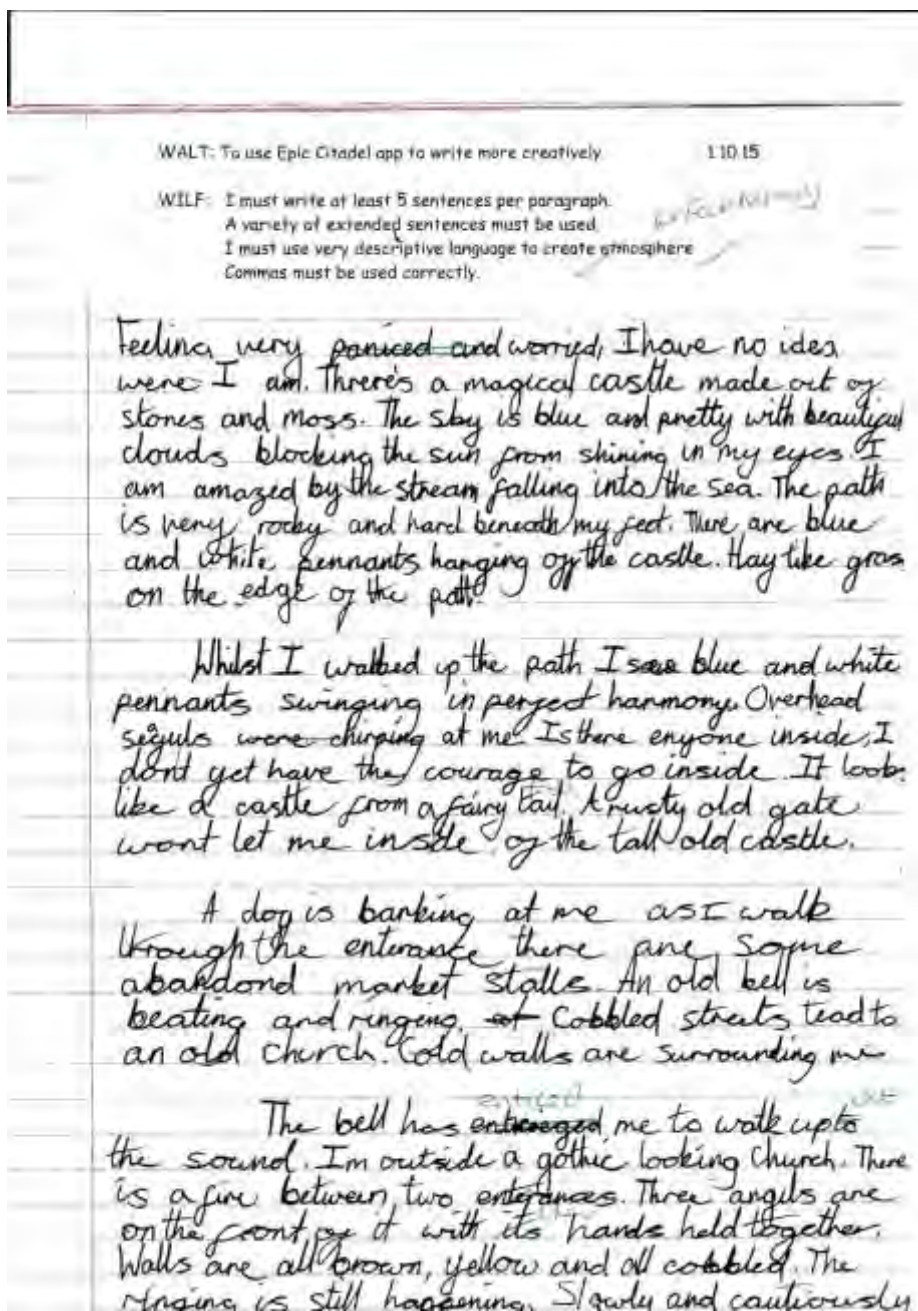 WALT: To use Epic Citadel app to write more creatively. 1.10.15
WILF: I must write at least 5 sentences per paragraph.
A variety of extended sentences must be used.
I must use very descriptive language to create atmosphere
Commas must be used correctly.
Feeling very paniced and worried, I have no idea
were I am. Threre's a magical castle made out of
stones and moss. The sky is blue and pretty with beautiful
clouds blocking the sun from shining in my eyes. I
am amazed by the stream falling into the sea. The path
is very rocky and hard beneath my feet. There are blue
and white pennants hanging off the castle. Hay like gras
on the edge of the path.
Whilst I walked up the path I saw blue and white
pennants swinging in perfect harmony. Overhead
seguls were chirping at me. Is there enyone inside, I
dont yet have the courage to go inside. It looks
like a castle from a fairy tail. A rusty old gate
wont let me inside of the tall old castle.
A dog is barking at me as I walk
through the enterance there are some
abandond market stalls. An old bell is
beating and ringing. Cobbled streets lead to
an old church. Cold walls are surrounding me
enticed
The bell has me to walk upto
the sound. Im outside a gothic looking Church. There
is a fire between two enterances. Three angels are
on the front of it with its hands held together.
Walls are all brown, yellow and all cobbled. The
ringing is still happening. Slowly and cautiously